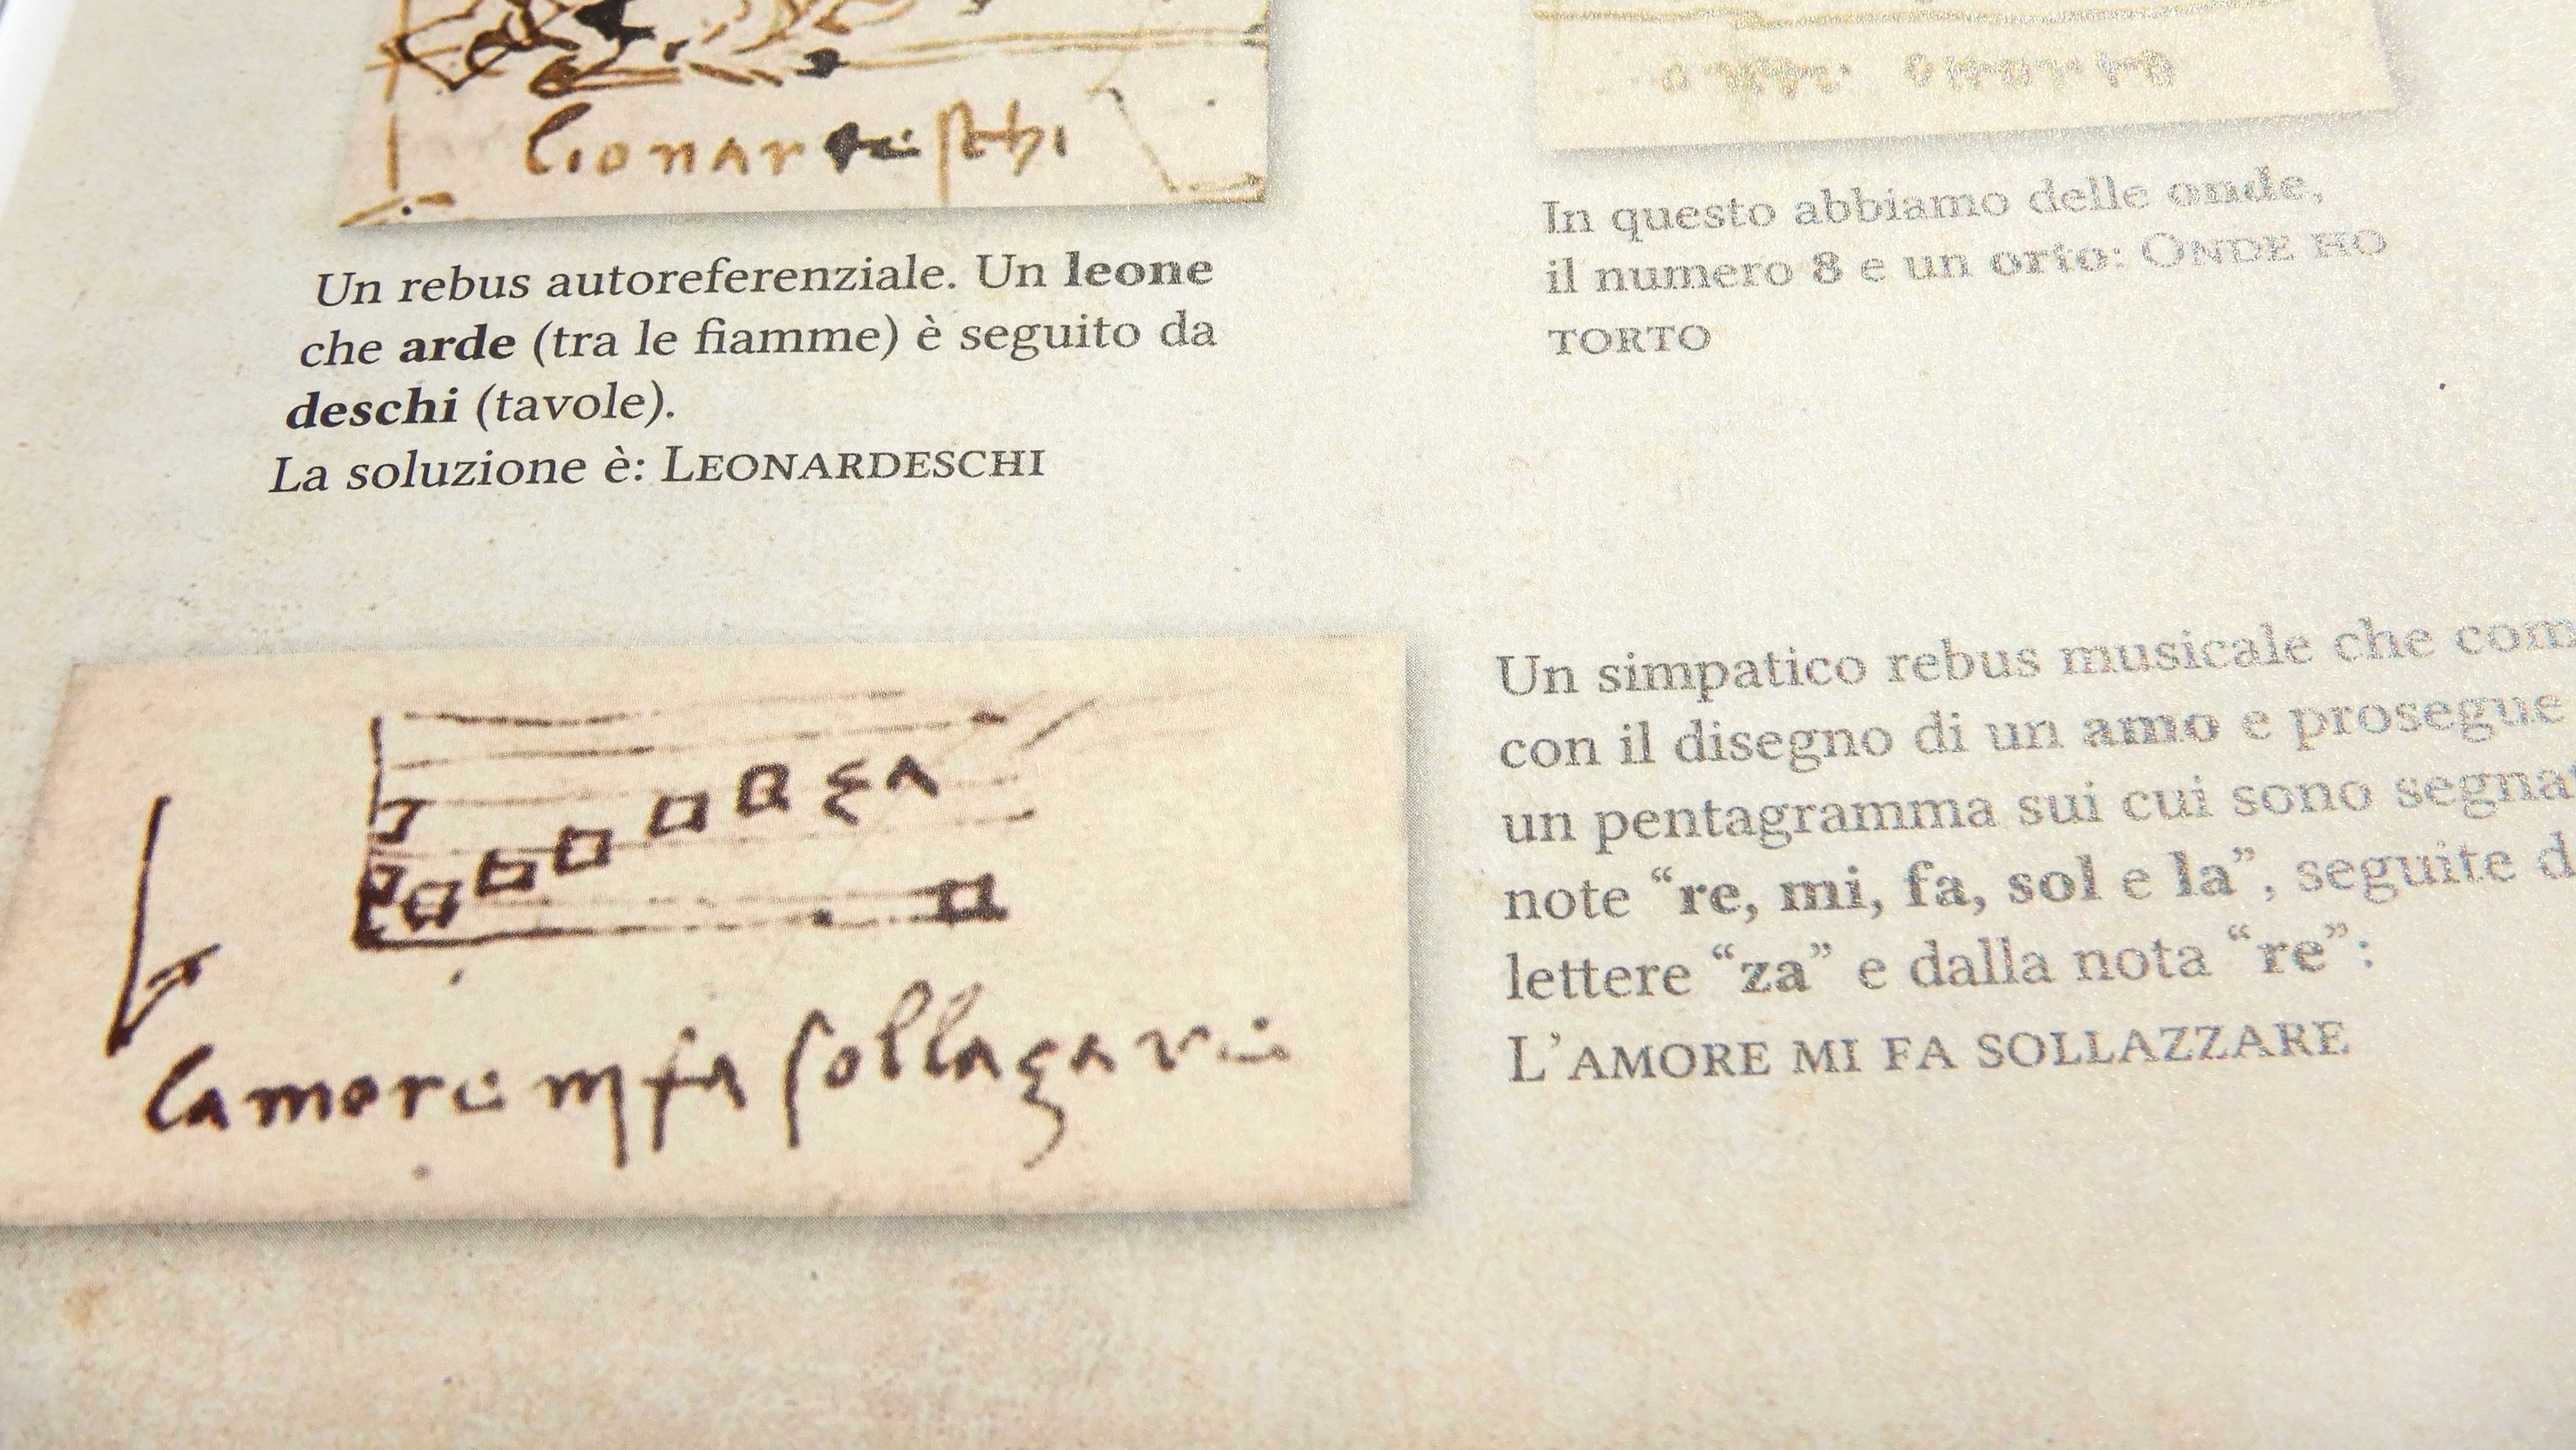 lionardeschi
Un rebus autoreferenziale. Un leone
che arde (tra le fiamme) è seguito da
deschi (tavole).
La soluzione è: LEONARDESCHI
In questo abbiamo delle onde,
il numero 8 e un orto: ONDE HO
TORTO
za
lamore mi fa sollazare
Un simpatico rebus musicale che com
con il disegno di un amo e prosegue
un pentagramma sui cui sono segnat
note “re, mi, fa, sol e la”, seguite d
lettere “za” e dalla nota “re”:
L’AMORE MI FA SOLLAZZARE